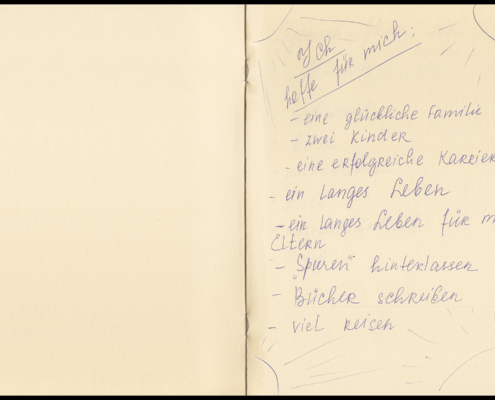 Ych
hoffe für mich:
- eine glückliche Familie
- zwei Kinder
- eine erfolgreiche Karrier
- ein langes Leben
- ein langes Leben für m
Eltern
- "Spuren" hinterlassen
- Bücher schreiben
- viel reisen